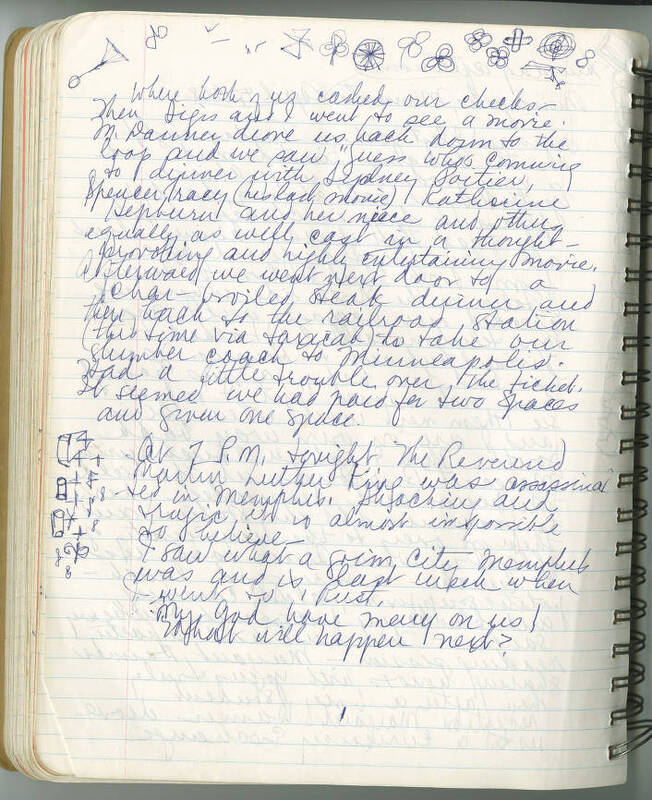 where both of us cashed our checks.
Then Digs and I went to see a movie.
M. Danner drove us back down to the
loop and we saw "Guess who's comming
to dinner with Sydney Poitier,
Spencer Tracy (his last movie) Katherine
Hepburn and her niece and others
equally as well cast in a thought-
provoking and highly entertaining movie.
Afterward we went next door to a
char-broiled steak dinner and
then back to the railroad station
(this time via taxicab) to take our
slumber coach to Minneapolis.
Had a little trouble over the ticket.
It seemed we had paid for two spaces
and given one space.
At 7 P.M. tonight The Reverend
Martin Luther King was assassina
ted in Memphis. Shocking and
tragic it is almost impossible
to believe.
I saw what a grim city Memphis
was and is last week when
I went to Rust.
My God have mercy on us!
What will happen next?